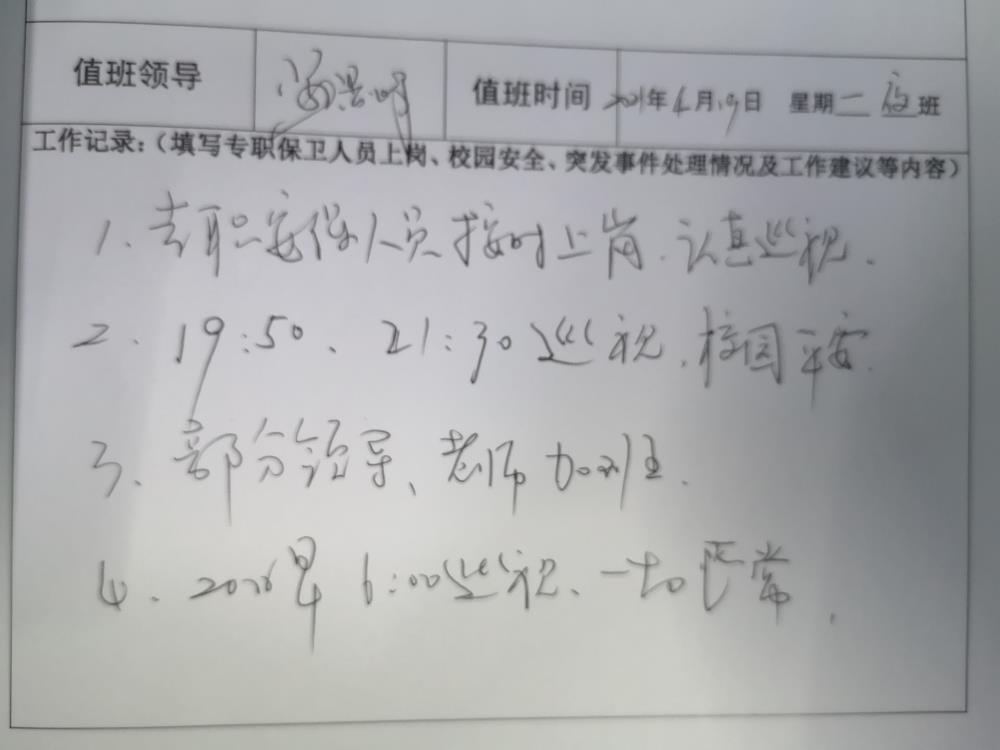 值班领导 值班时间 2021年4月19日 星期二夜班
工作记录：（填写专职保卫人员上岗、校园安全、突发事件处理情况及工作建议等内容）
1、专职安保人员按时上岗、认真巡视.
2、19:50、21:30巡视、校园平安.
3、部分领导、老师加班.
4、20日早6:00巡视、一切正常.